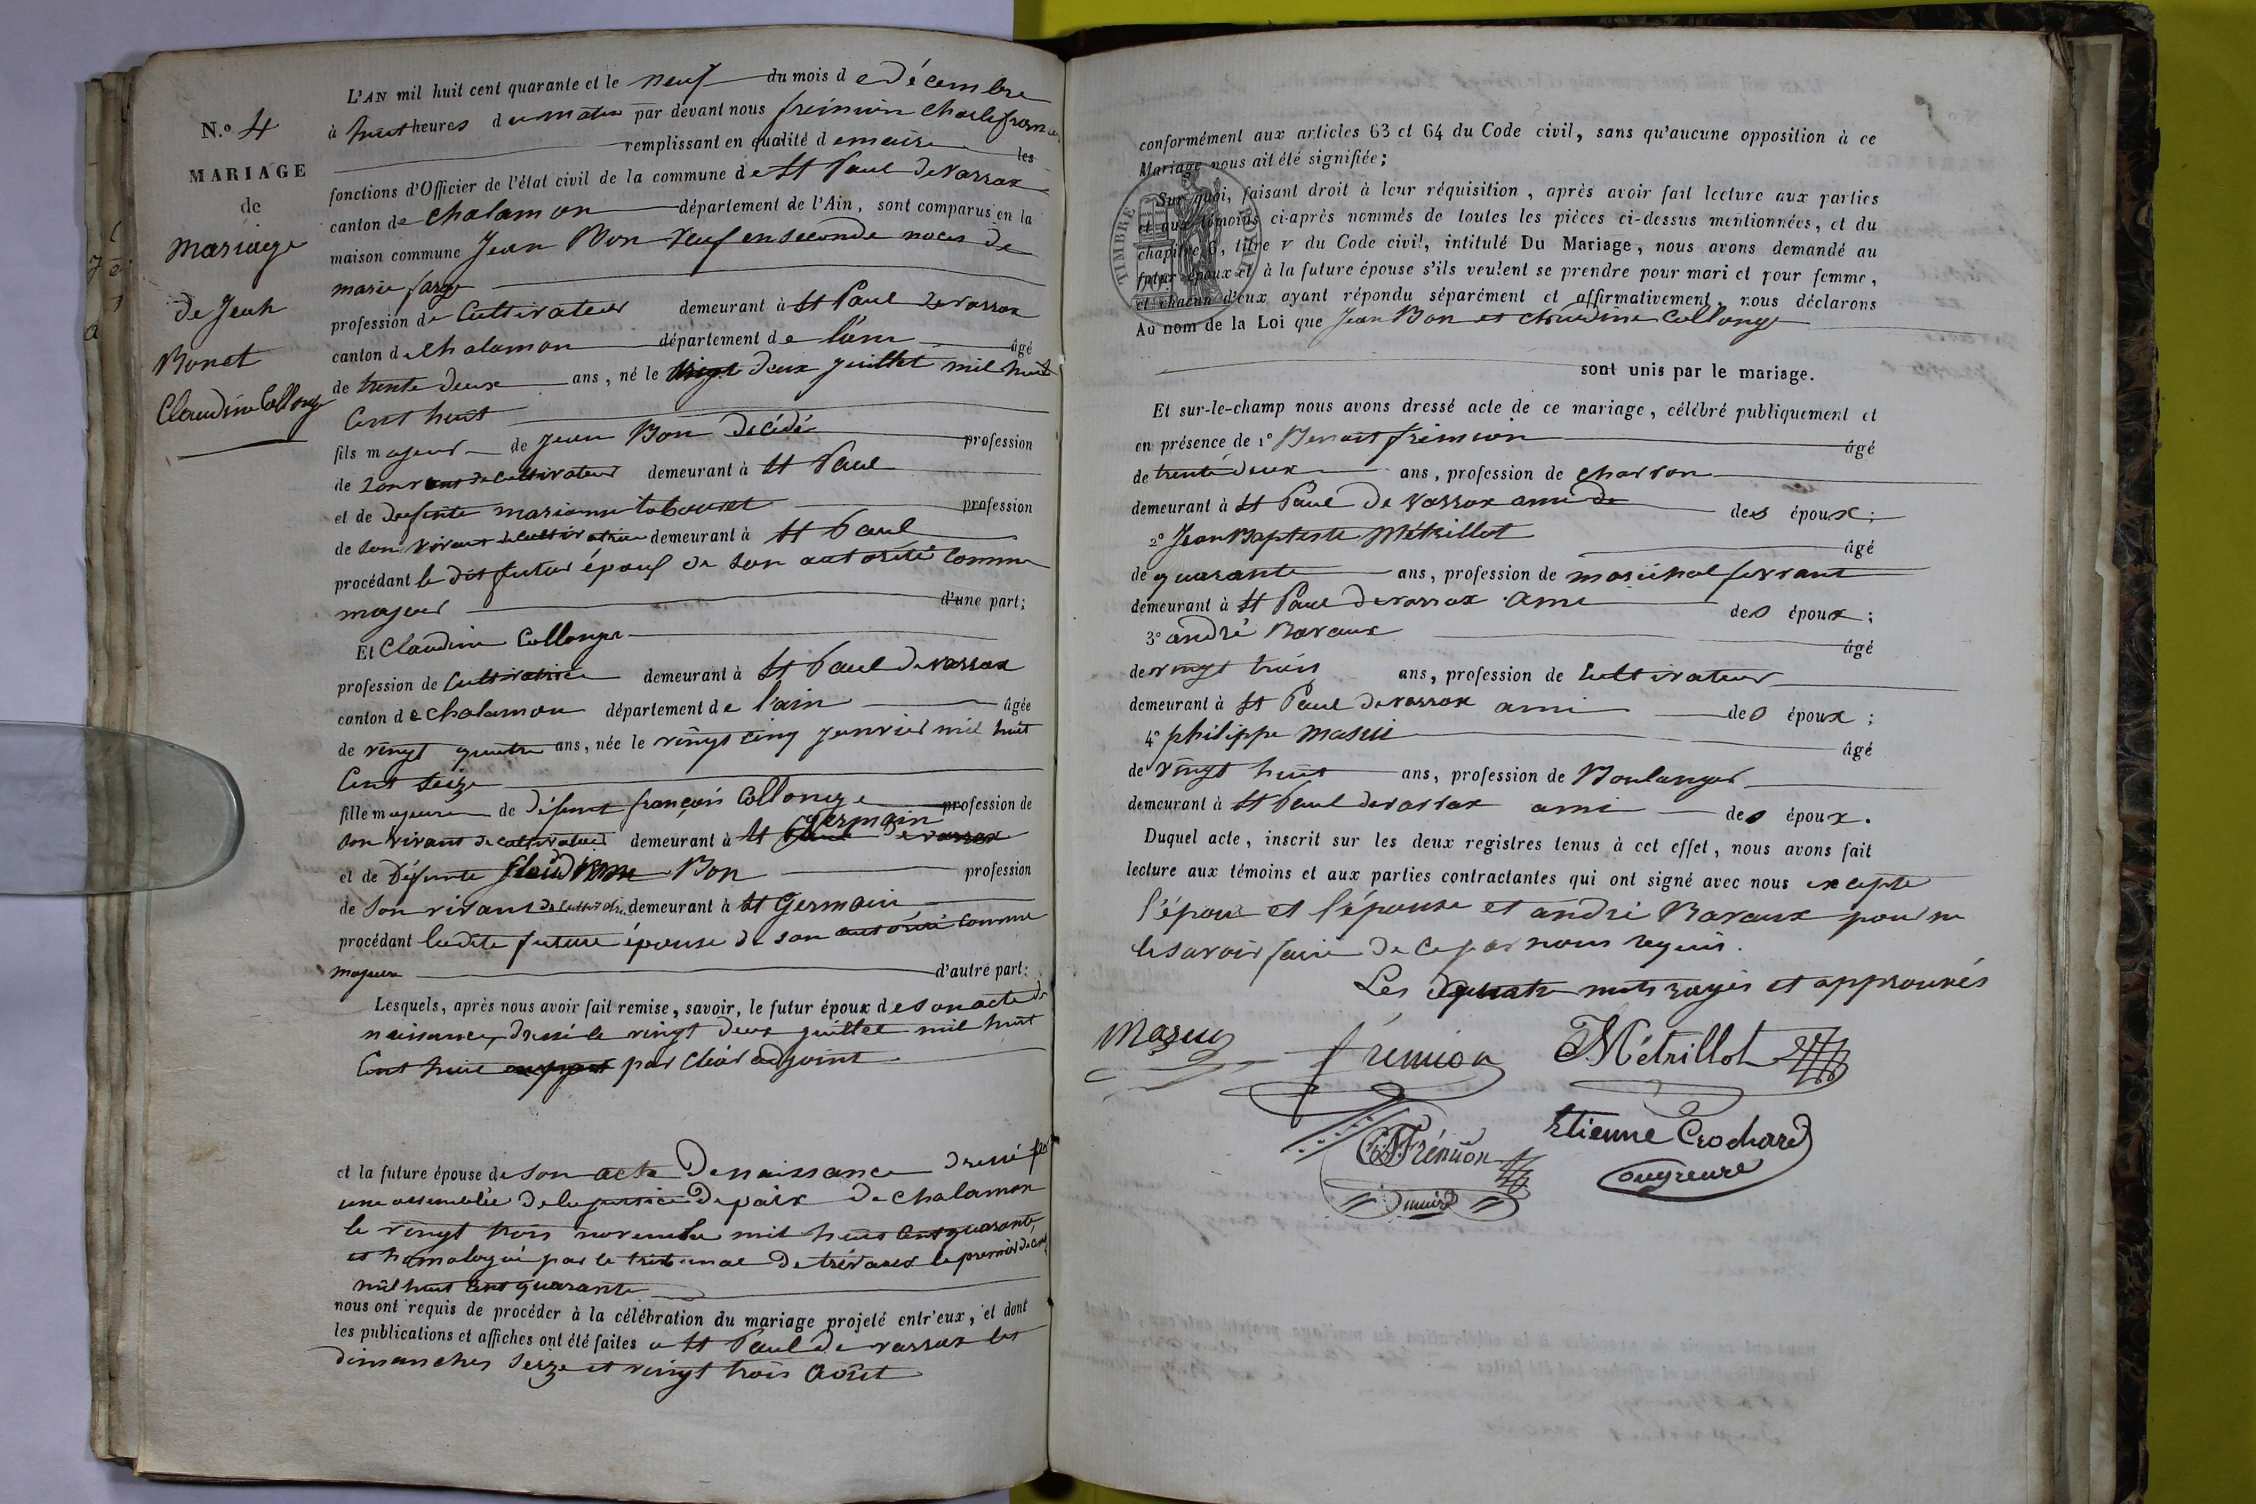 N.o 4
MARIAGE
de
mariage
de Jean
Bon et
Claudine Collonge
L'AN mil huit cent quarante et le neuf du mois de décembre
à huit heures du matin par devant nous frémion
remplissant en qualité de maire les
fonctions d'Officier de l'état civil de la commune de St Paul de varax
canton de chalamon département de l'Ain, sont comparus en la
maison commune Jean Bon veuf en seconde noces de
marie farge
profession de Cultivateur demeurant à St Paul de varax
canton de chalamon département de l'ain âgé
de trente deux ans, né le vingt deux juillet mil huit
Cent huit
fils majeur de jean Bon Décédé profession
de son vivant de cultivateur demeurant à St Paul
et de defunte marianne tabouret profession
de son vivant de cultivatrice demeurant à St Paul
procédant le dit futur époux de son autorité comme
majeur d'une part;
Et Claudine Collonge
profession de Cultivatrice demeurant à St Paul de varax
canton de chalamon département de l'ain âgée
de vingt quatre ans, née le vingt cinq janvier mil huit
Cent seize
fille majeure de défunt françois Collonge profession de
son vivant de cultivateur demeurant à St Paul de varax germain
et de défunte Bon profession
de son vivant de cultivatrice demeurant à St Germain
procédant ladite future épouse de son autorité comme
majeure d'autre part:
Lesquels, après nous avoir fait remise, savoir, le futur époux de son acte de
naissance, dressé le vingt deux juillet mil huit
Cent huit par adjoint
et la future épouse de son acte de naissance dressé par
une assemblée de la justice de paix de chalamon
le vingt trois novembre mil huit cent quarante
et homologué par le tribunal de trévoux le premier décembre
mil huit cent quarante
nous ont requis de procéder à la célébration du mariage projeté entr'eux, et dont
les publications et affiches ont été faites a St Paul de varax les
dimanches seize et vingt trois Août
conformément aux articles 63 et 64 du Code civil, sans qu'aucune opposition à ce
Mariage nous ait été signifiée;
Sur quoi, faisant droit à leur réquisition, après avoir fait lecture aux parties
et aux témoins ci-après nommés de toutes les pièces ci-dessus mentionnées, et du
chapitre 6, titre v du Code civil, intitulé Du Mariage, nous avons demandé au
futur époux et à la future épouse s'ils veulent se prendre pour mari et pour femme,
et chacun d'eux ayant répondu séparément et affirmativement, nous déclarons
Au nom de la Loi que Jean Bon et Claudine Collonge
sont unis par le mariage.
TIMBRE ROYAL
Et sur-le-champ nous avons dressé acte de ce mariage, célébré publiquement et
en présence de 1o Benoit frémion âgé
de trente deux ans, profession de charron
demeurant à St Paul de varax ami de des époux;
2o Jean Baptiste Métrillot âgé
de quarante ans, profession de maréchal ferrant
demeurant à St Paul de varax ami des époux;
3o andré Baraux âgé
de vingt trois ans, profession de Cultivateur
demeurant à St Paul de varax ami des époux;
4o philippe masui âgé
de vingt huit ans, profession de Boulanger
demeurant à St Paul de varax ami des époux.
Duquel acte, inscrit sur les deux registres tenus à cet effet, nous avons fait
lecture aux témoins et aux parties contractantes qui ont signé avec nous excepté
l'époux et l'épouse et andré Baraux pour ne
le savoir faire de ce par nous requis.
Les quatre mots rayés et approuvés
Masuy frémion Métrillot
Frémion Etienne Crochard
maire